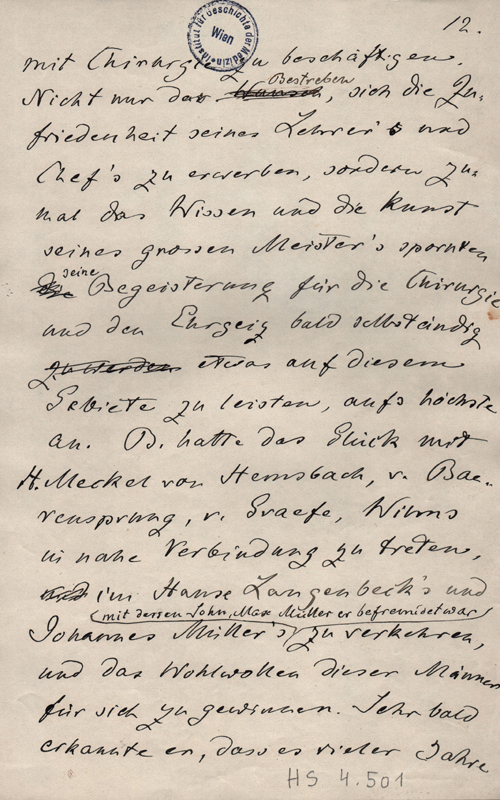 12.
Institut für Geschichte der Medizin
Wien
mit Chirurgie zu beschäftigen.
Bestreben
Nicht nur das Wunsch, sich die Zu-
friedenheit seines Lehrer's und
Chef's zu erwerben, sondern zu-
mal das Wissen und die Kunst
seines grossen Meister's spornten
seine
Begeisterung für die Chirurgie
und den Ehrgeiz bald selbständig
zu werden etwas auf diesem
Gebiete zu leisten, aufs höchste
an. B. hatte das Glück mit
H. Meckel von Hemsbach, v. Bae-
rensprung, v. Graefe, Wilms
in nahe Verbindung zu treten,
und im Hause Langenbeck's und
(mit dessen Sohn, Max Müller er befreundet war)
Johannes Müller's zu verkehren,
und das Wohlwollen dieser Männer
für sich zu gewinnen. Sehr bald
erkannte er, dass es vieler Jahre
HS 4.501